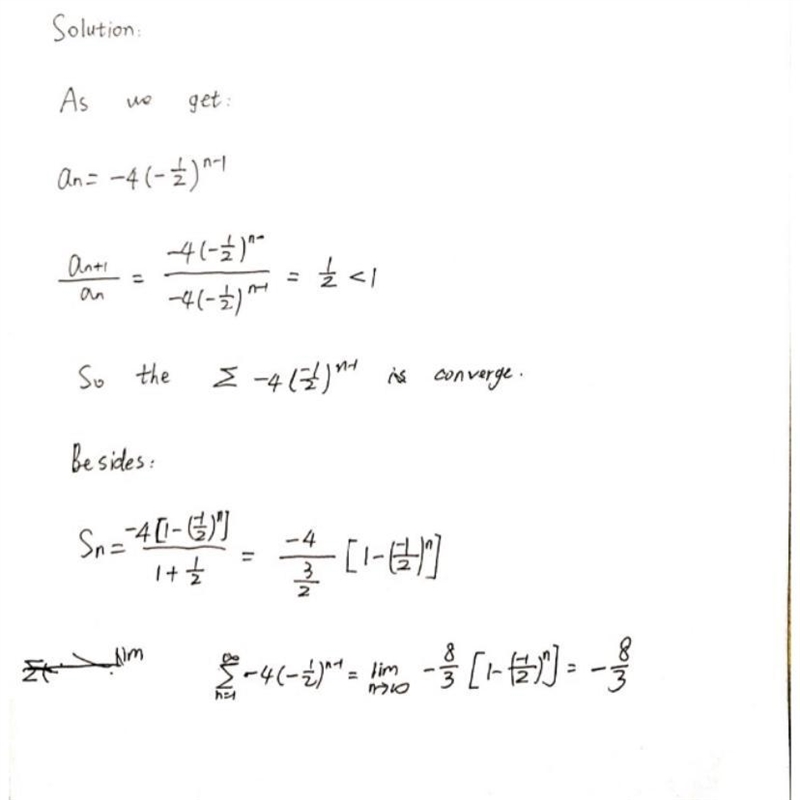 Solution:
As we get:
an = -4(-1/2)^n-1
an+1/an = -4(-1/2)^n-/-4(-1/2)^n-1 = 1/2 < 1
So the Σ -4(-1/2)^n-1 is converge.
Besides:
Sn = -4[1-(-1/2)^n]/1+1/2 = -4/(3/2) [1-(-1/2)^n]
lim
∞Σn=1 -4(-1/2)^n-1 = lim n→∞ -8/3 [1-(-1/2)^n] = -8/3